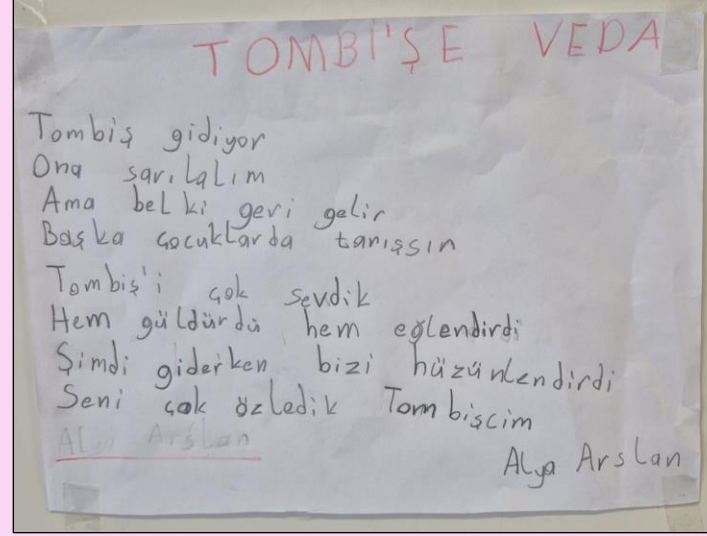 TOMBİ'ŞE VEDA
Tombiş gidiyor
Ona sarılalım
Ama belki geri gelir
Başka çocuklarda tanışsın
Tombiş'i çok sevdik
Hem güldürdü hem eğlendirdi
Şimdi giderken bizi hüzünlendirdi
Seni çok özledik Tombişcim
Alya Arslan
Alya Arslan